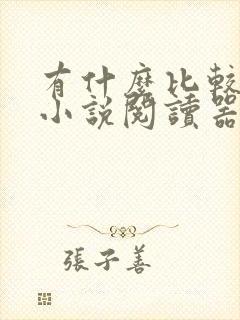 有什麼比較
小說閱讀器
張子善